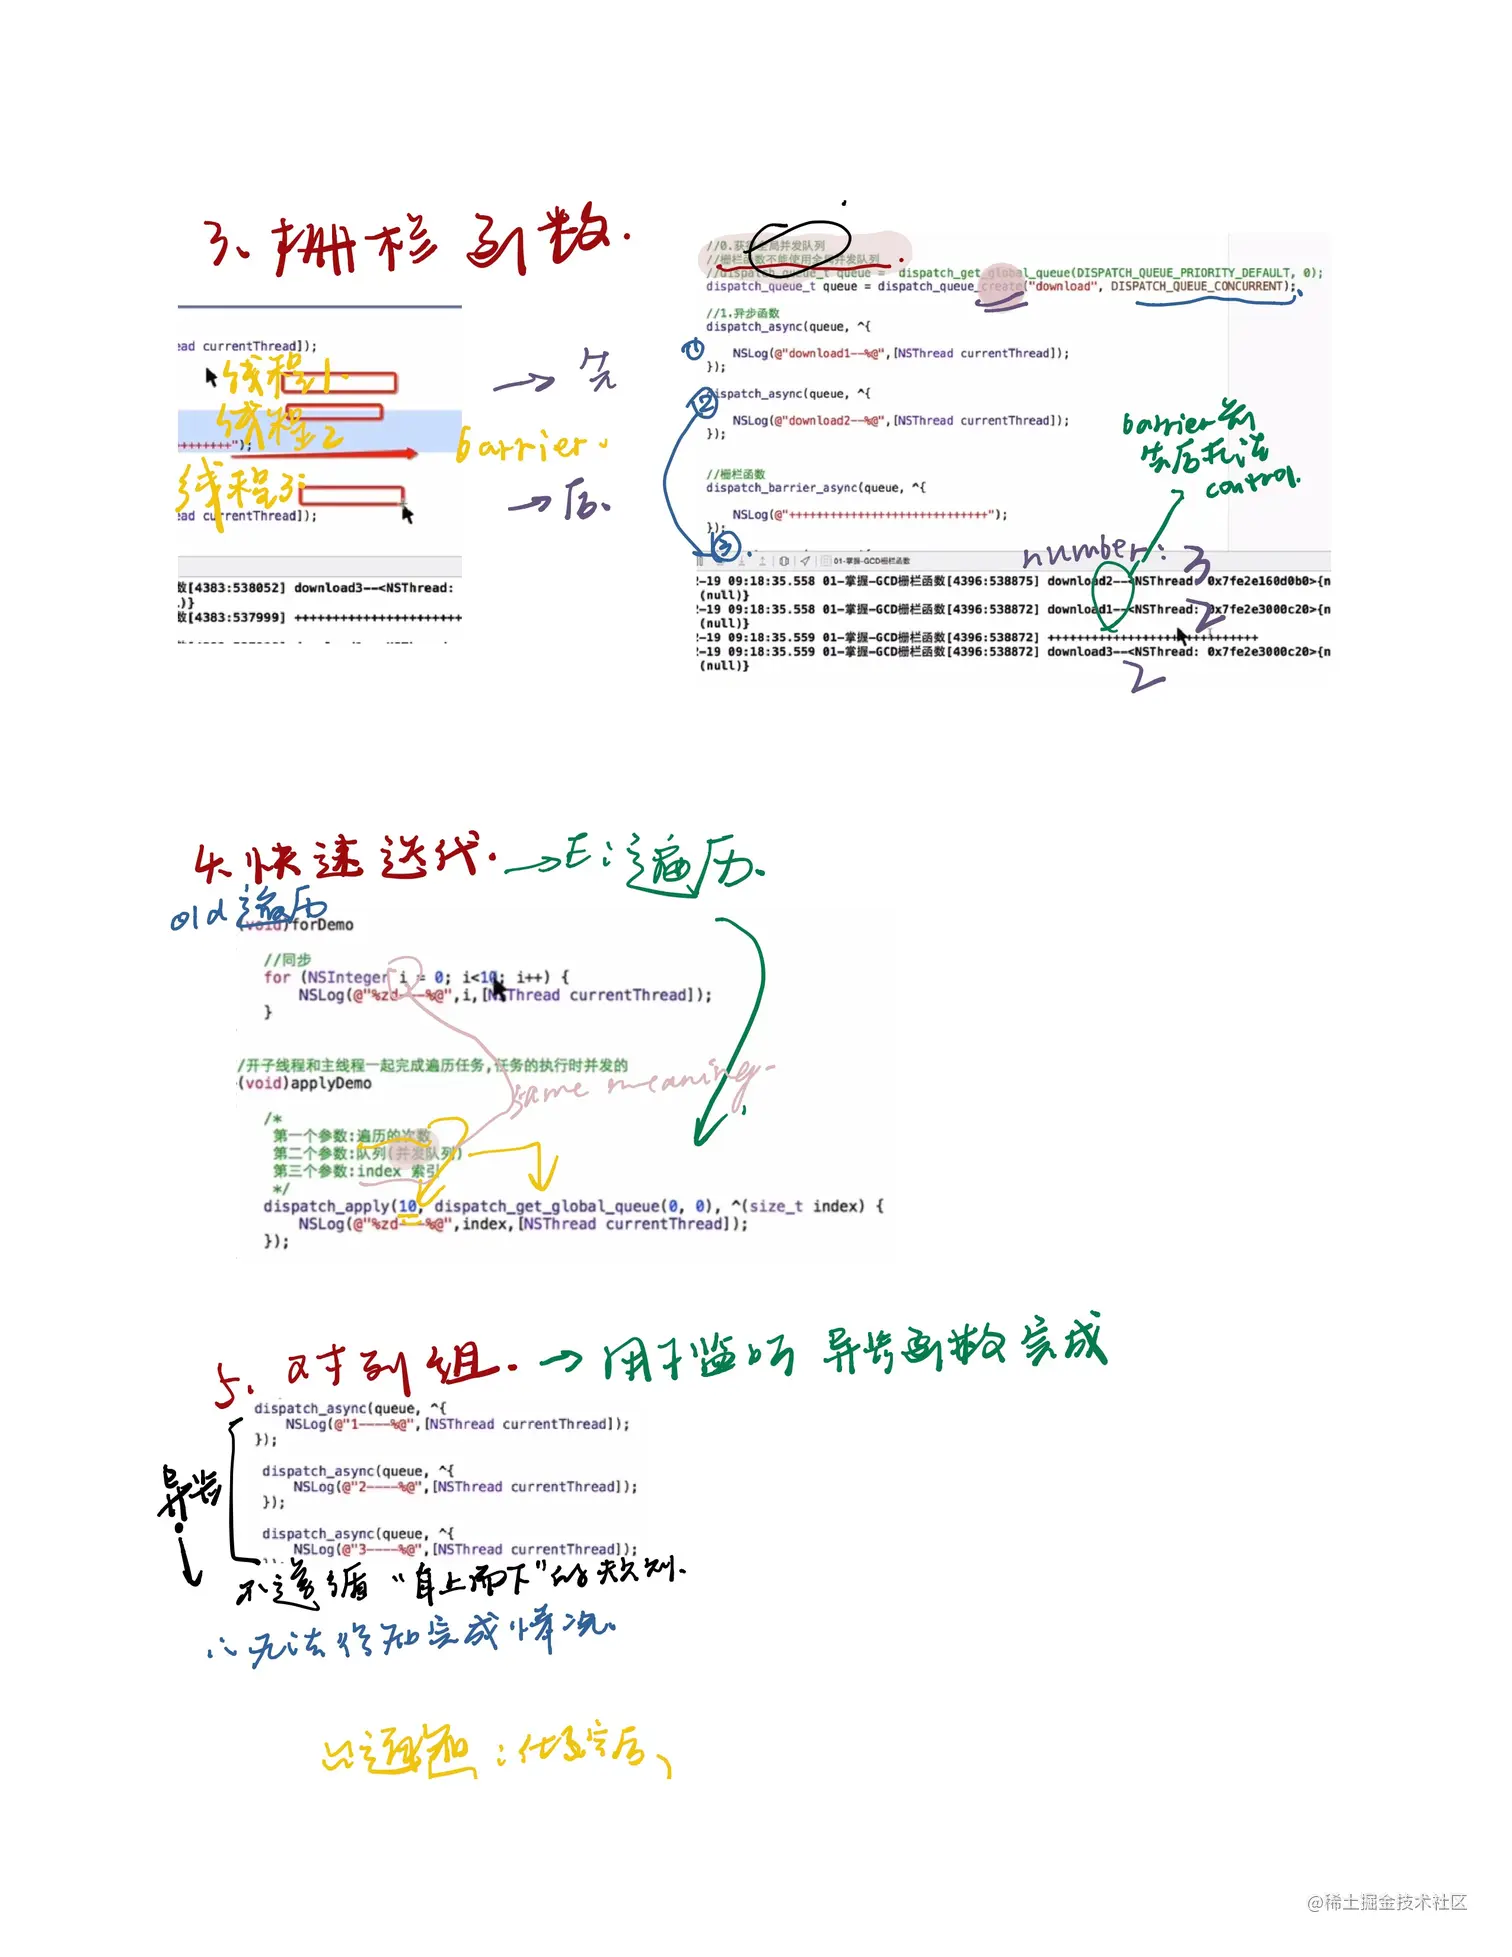 3、栅栏函数.
//0.获 全局并发队列
//栅栏函数不能使用全局并发队列
//dispatch_queue_t queue = dispatch_get_global_queue(DISPATCH_QUEUE_PRIORITY_DEFAULT, 0);
dispatch_queue_t queue = dispatch_queue_create("download", DISPATCH_QUEUE_CONCURRENT);
//1.异步函数
dispatch_async(queue, ^{
① NSLog(@"download1--%@",[NSThread currentThread]);
});
② dispatch_async(queue, ^{
NSLog(@"download2--%@",[NSThread currentThread]);
});
//栅栏函数
dispatch_barrier_async(queue, ^{
NSLog(@"+++++++++++++++++++++++++++++");
});
③
barrier前
先后无法
control.
ead currentThread]);
线程1 → 先
线程2
+++++++++");
barrier
线程3 → 后.
ead currentThread]);
数[4383:538052] download3--<NSThread:
l)}
数[4383:537999] +++++++++++++++++++++++++
01-掌握-GCD栅栏函数
number: 3
2-19 09:18:35.558 01-掌握-GCD栅栏函数[4396:538875] download2--<NSThread: 0x7fe2e160d0b0>{n
(null)}
2-19 09:18:35.558 01-掌握-GCD栅栏函数[4396:538872] download1--<NSThread: 0x7fe2e3000c20>{n
(null)} 2
2-19 09:18:35.559 01-掌握-GCD栅栏函数[4396:538872] +++++++++++++++++++++++++++++
2-19 09:18:35.559 01-掌握-GCD栅栏函数[4396:538872] download3--<NSThread: 0x7fe2e3000c20>{n
(null)} 2
4.快速迭代. → E:遍历.
old遍历
(void)forDemo
//同步
for (NSInteger i = 0; i<10; i++) {
NSLog(@"%zd---%@",i,[NSThread currentThread]);
}
/开子线程和主线程一起完成遍历任务,任务的执行时并发的
(void)applyDemo
same meaning.
/*
第一个参数:遍历的次数
第二个参数:队列(并发队列)
第三个参数:index 索引
*/
dispatch_apply(10, dispatch_get_global_queue(0, 0), ^(size_t index) {
NSLog(@"%zd---%@",index,[NSThread currentThread]);
});
5.对列组. → 用于监听 异步函数完成
dispatch_async(queue, ^{
NSLog(@"1----%@",[NSThread currentThread]);
});
dispatch_async(queue, ^{
NSLog(@"2----%@",[NSThread currentThread]);
});
异步
dispatch_async(queue, ^{
NSLog(@"3----%@",[NSThread currentThread]);
不遵循"自上而下"的规则.
∴无法得知完成情况.
@稀土掘金技术社区